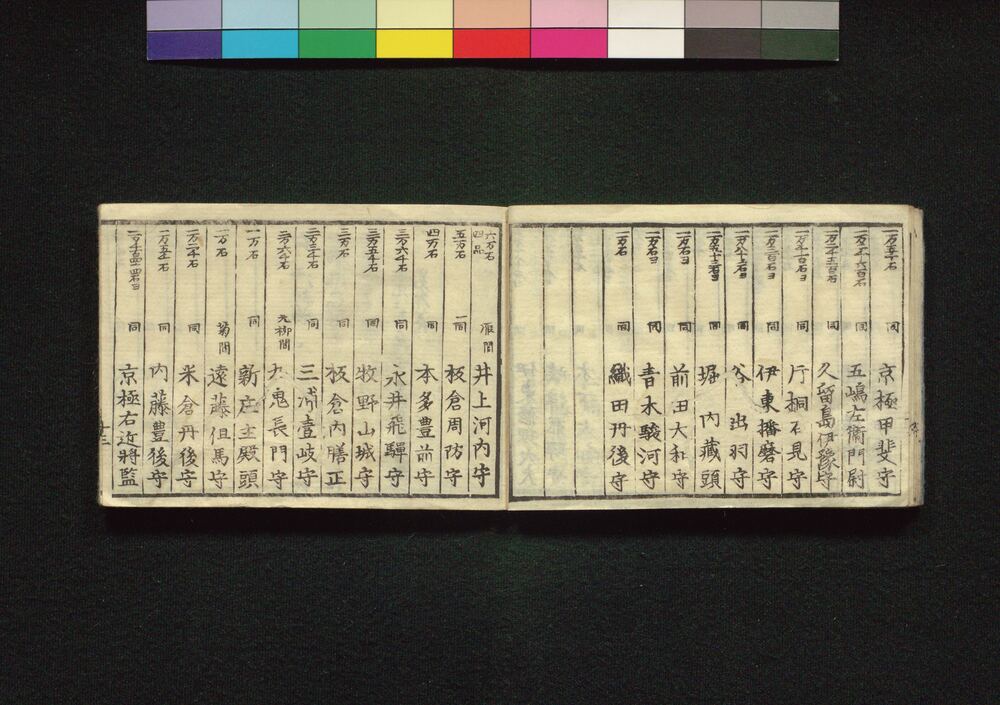 一万五千石 同 京極甲斐守
一万二千六百石 同 五嶋左衛門尉
一万二千五百石 同 久留島伊豫守
一万千百石ヨ 同 片桐石見守
一万三百石ヨ 同 伊東播磨守
一万八十二石ヨ 同 谷出羽守
同 堀内藏頭
一万石ヨ 同 前田大和守
一万石ヨ 同 青木駿河守
一万石 同 織田丹後守
六万石 四品 雁間 井上河内守
五万石 同 板倉周防守
四万石 同 本多豊前守
三万六千石 同 永井飛騨守
三万五千石 同 牧野山城守
三万石 同 板倉内膳正
二万三千石 同 三浦壹岐守
二万六千石 元柳間 九鬼長門守
一万石 同 新庄主殿頭
一万石 菊間 遠藤但馬守
一万二千石 同 米倉丹後守
一万五千石 同 内藤豊後守
同 京極右近將監
十三